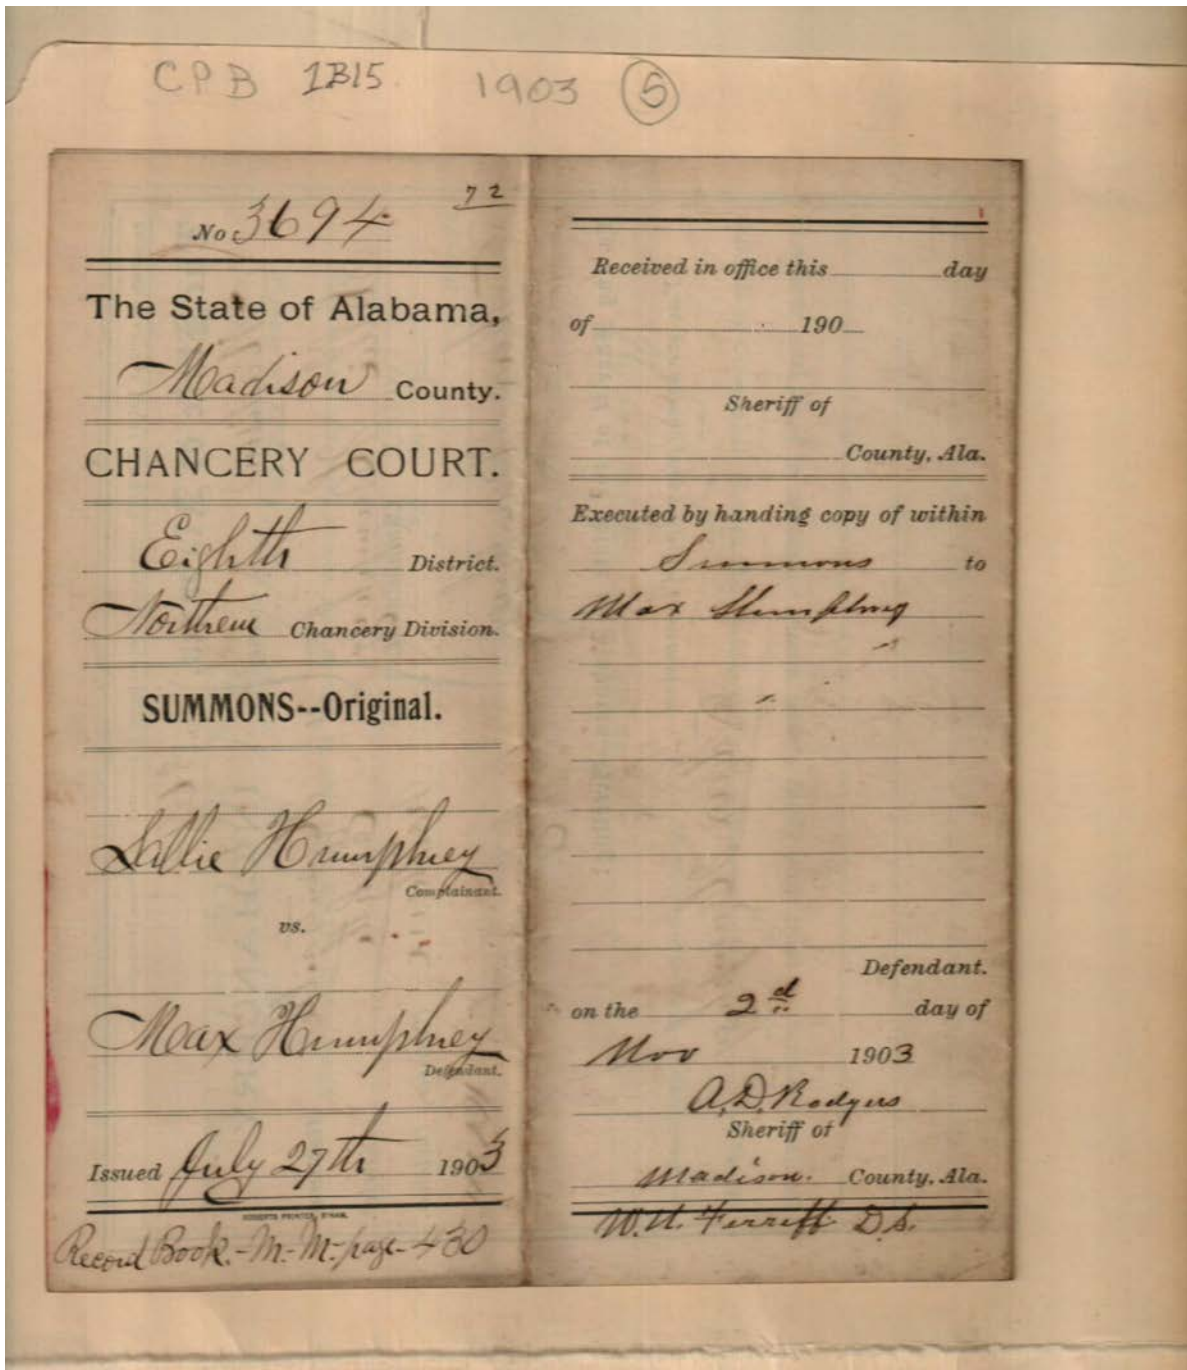 CPB 1B15 1903 5
72
No 3694
The State of Alabama,
Madison County.
CHANCERY COURT.
Eighth District.
Northern Chancery Division.
SUMMONS--Original.
Sallie Humphrey
Complainant.
vs.
Max Humphrey
Defendant.
Issued July 27th 1903
Record Book.-M.-M-page-430
Received in office this day
of 190
Sheriff of
County, Ala.
Executed by handing copy of within
Summons to
Max Humphrey
Defendant.
on the 2d day of
Nov 1903
A.D. Rodgers
Sheriff of
Madison County, Ala.
W. D.S.